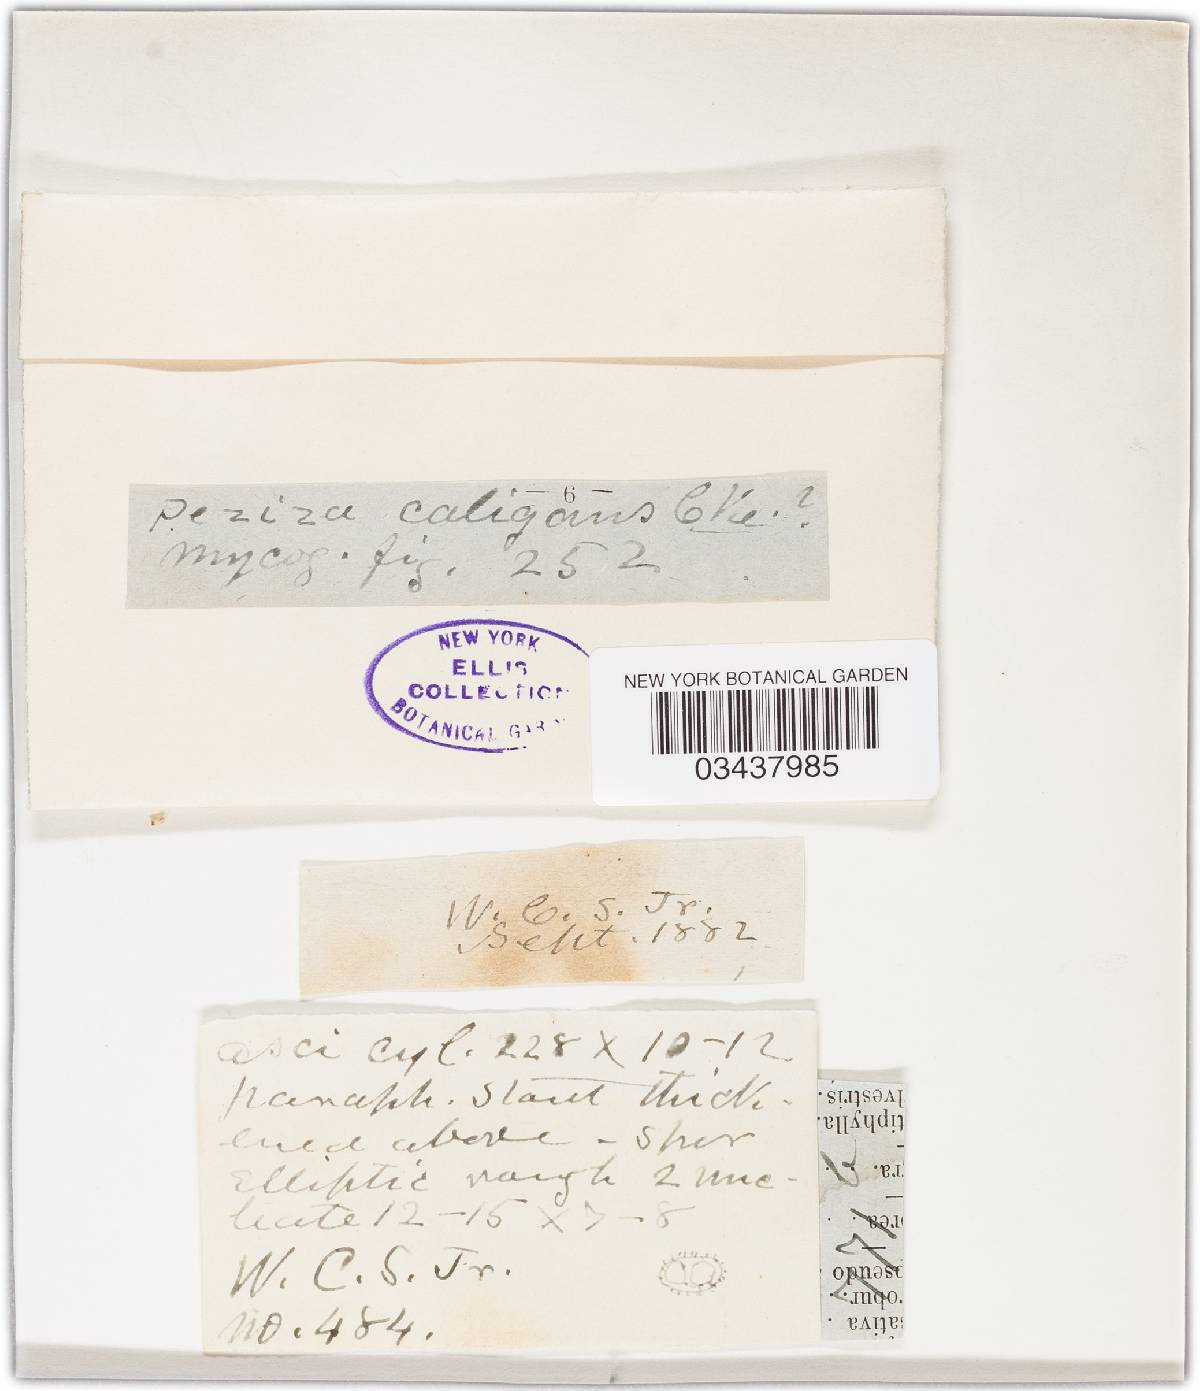 — 6 —
Peziza caligans Cke. ?
mycog. fig. 252
NEW YORK
ELLIS
COLLECTION
BOTANICAL GAR
NEW YORK BOTANICAL GARDEN
03437985
W. C. S. Jr.
Sept. 1882
asci cyl. 228 X 10-12
paraph. stout thick-
ened above - spor
Elliptic rough 2 nuc-
leate 12-15 X 7-8
W. C. S. Jr.
no. 484.
lvestris.
tiphylla.
ra.
rea
pseudo
obur.
sativa